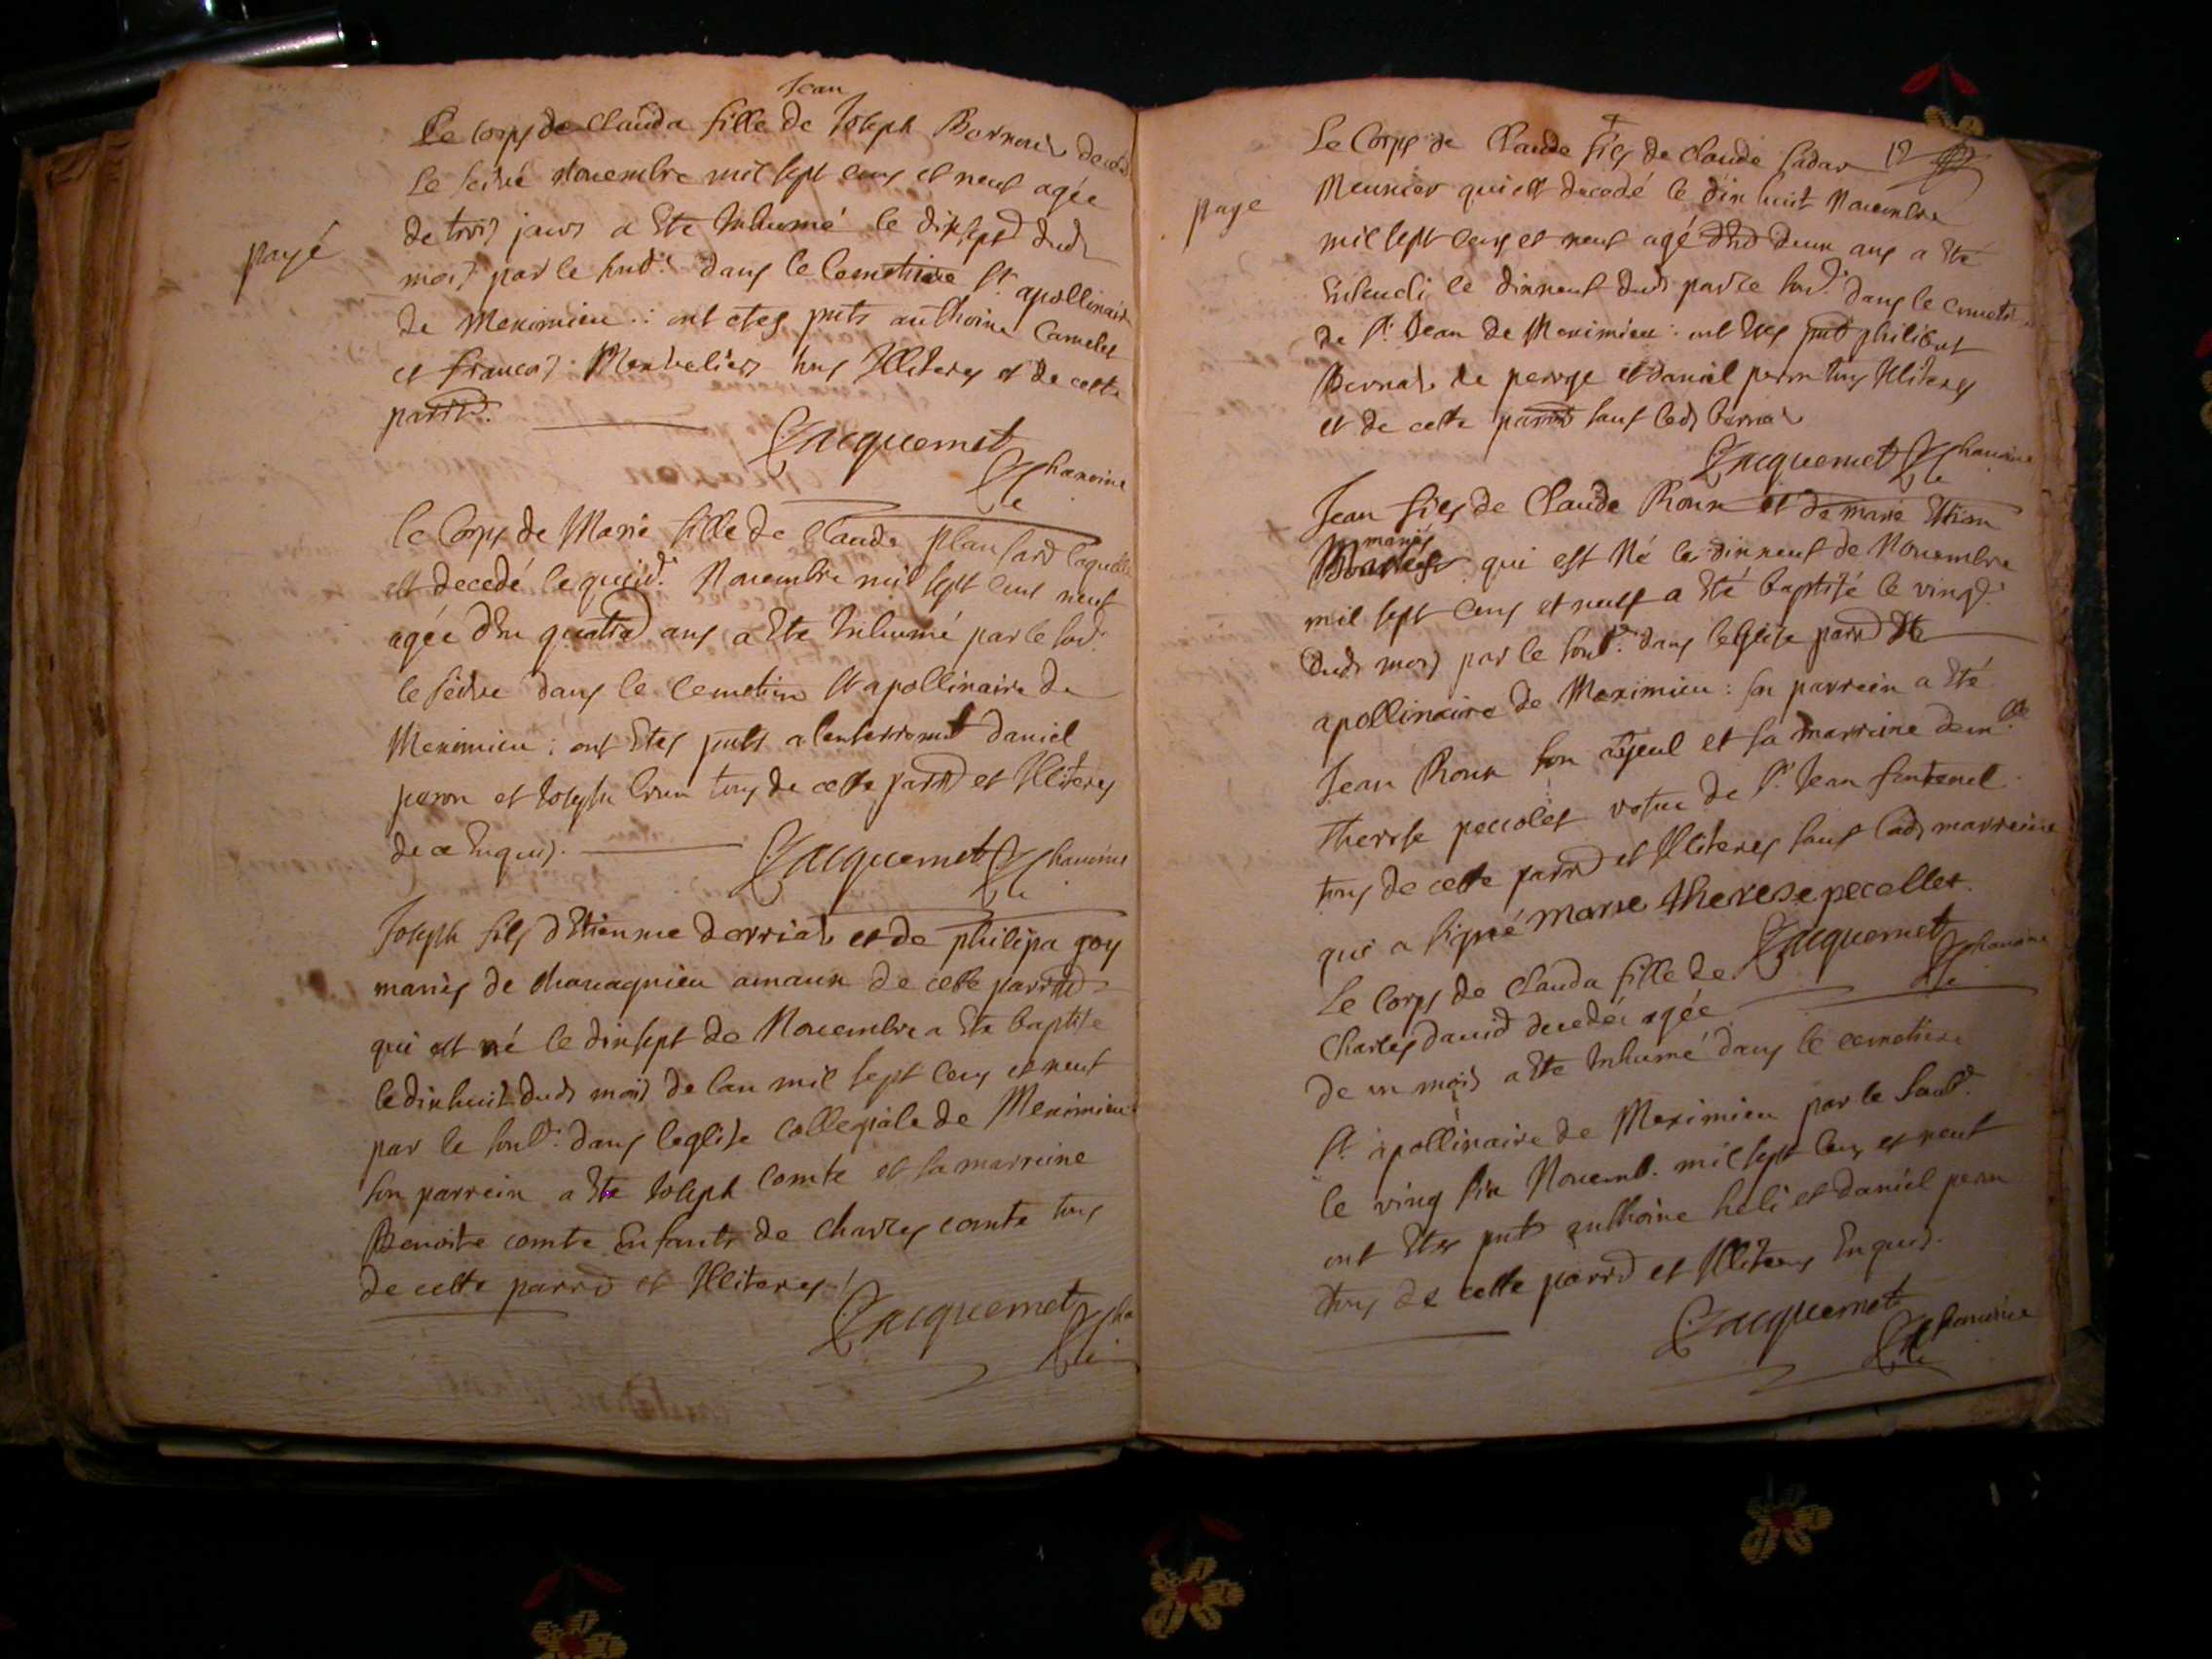 Jean
Le Corps de Clauda fille de Joseph Bornoud decedé
Le seizié novembre mil sept cens et neuf agée
de trois jours a Ete Inhumé le dixsept dud
payé
mois par le sud: dans le Cemetiere St apollinaire
de Meximieu: ont etes pnts anthoine Camelet
et francois Monbelier tous Illiteres et de cette
parr.
Jacquemet Chanoine
le Corps de Marie fille de Claude plan sard laquelle
est decedé le quizie Novembre mil sept cens neuf
agée quatre ans a Ete Inhumé par le sud:
le seizie dans le Cemetiere St apollinaire de
Meximieu: ont Etes pnts a lenterrement daniel
peron et Joseph brun tous de cette parr et Illiteres
de ce Enquis.
Jacquemet Chanoine
Joseph fils dEtienne dorriad et de philipa goy
mariés de chavagnieu amaux de cette parr
qui est né le dixsept de Novembre a Ete baptisé
le dixhuit dud mois de lan mil sept cens et neuf
par le soub: dans leglise Collegiale de Meximieu
son parrein a Ete Joseph Comte et sa marreine
Benoite comte Enfants de Charles comte tous
de cette parr et Illiteres
Jacquemet Cha
Le Corps de Claude fils de Claude sadar 12
Meunier qui est decedé le dix huit Novembre
page
mil sept cens et neuf agé dun ans a Eté
Enseveli le dixneuf dud par le sud: dans le Cimeti
de St Jean de Meximieu: ont Etes pnt philibert
Bernad de peroge et daniel peron tous Illiteres
et de cette parr sauf led bernad
Jacquemet Chanoine
Jean fils de Claude Roux et de marie Etien
mariés
qui est Né le dixneuf de Novembre
mil sept cens et neuf a Eté baptisé le vingt
dud mois par le soub: dans leglise parr Ste
apollinaire de Meximieu: son parrein a Eté
Jean Roux son ayeul et sa marreine dem.lle
Therese pecolet vefue de Sr Jean fontanel
tous de cette parr et Illiteres sauf lad marreine
qui a signé marie therese pecollet.
Jacquemet Chanoine
Le Corps de Clauda fille de
Charles david decedée agée
de un mois a Ete Inhumé dans le cemetiere
St apollinaire de Meximieu par le soub:
le ving six Novemb. mil sept cens et neuf
ont Etes pnt anthoine heli et daniel peron
tous de cette parr et Illiteres Enquis.
Jacquemet Chanoine